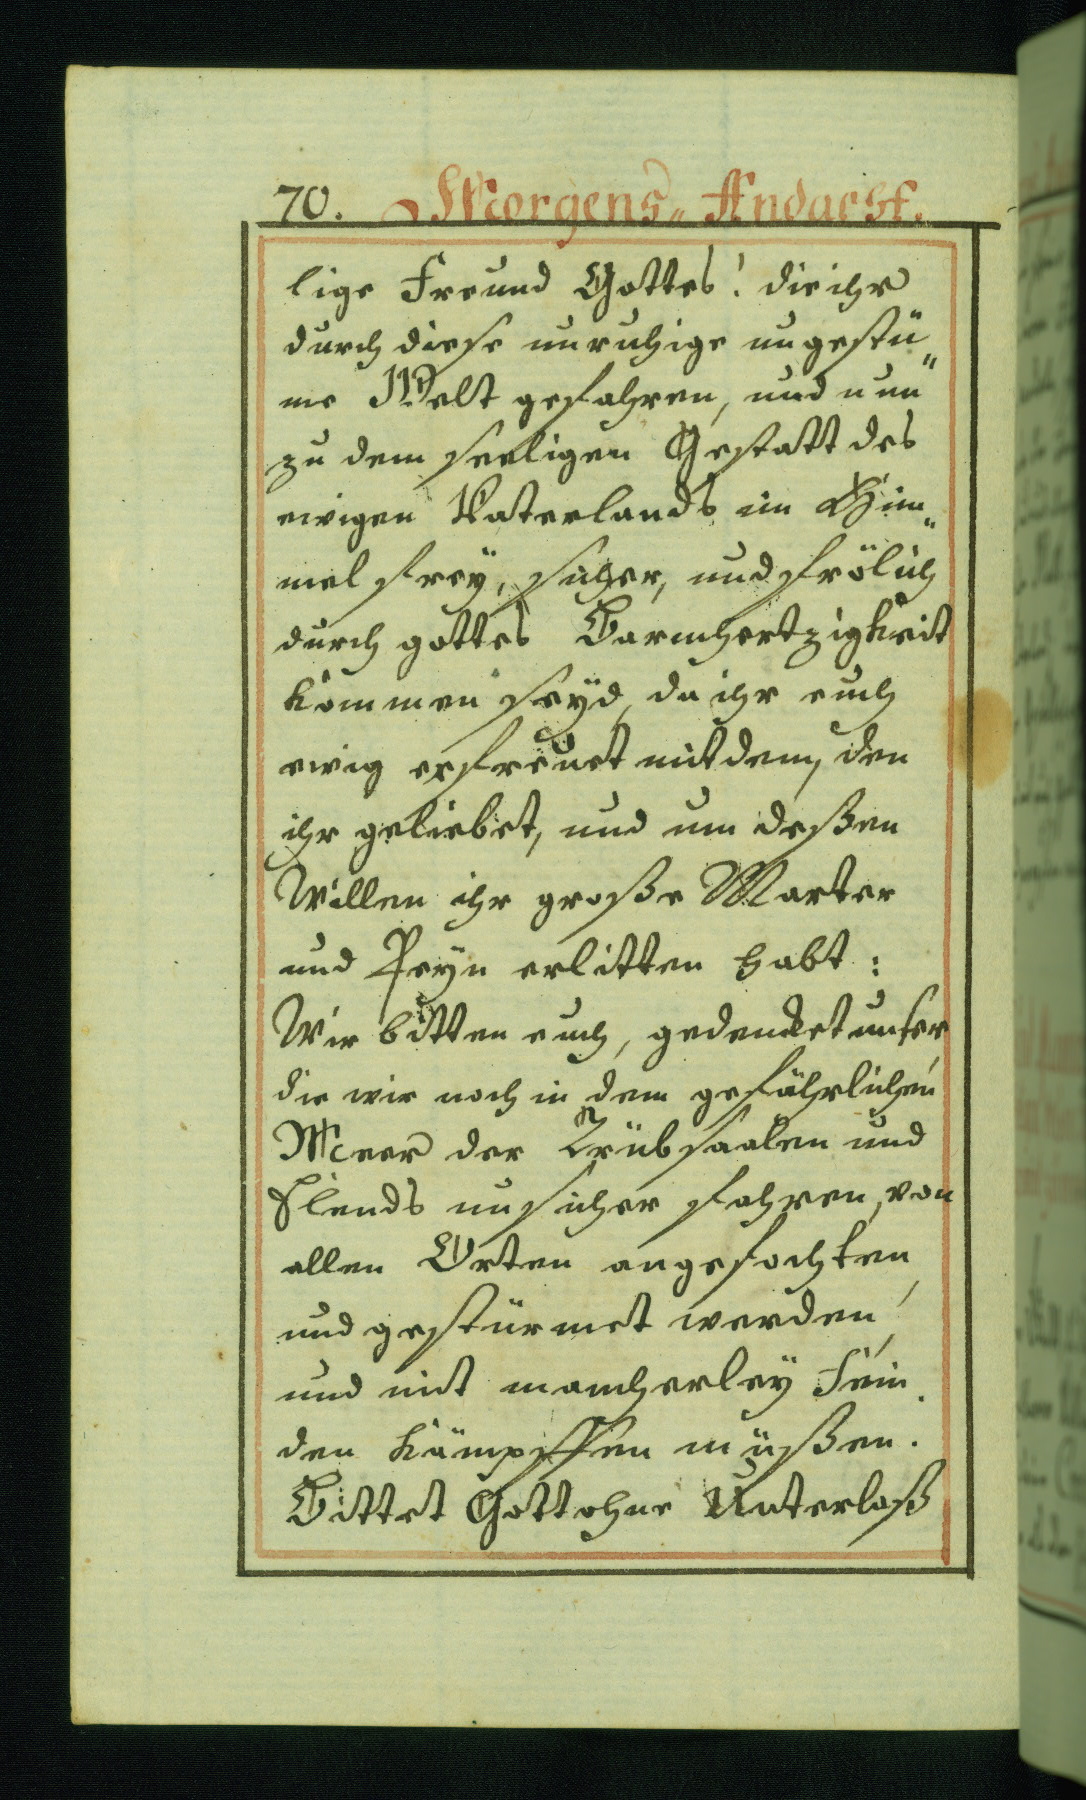 70. Morgens„ Andacht.
lige Freund Gottes! die ihr
durch diese unruhige ungestü„
me Welt gefahren, und nun
zu dem seeligen Gestatt des
ewigen Vaterlands im Him„
mel frey, sicher, und frölich
durch gottes Barmhertzigkeit
kommen seyd, da ihr euch
ewig erfreuet mit dem, den
ihr geliebet, und um deßen
Willen ihr große Marter
und Peyn erlitten habt:
Wir bitten euch, gedencket unser
die wir noch in dem gefährlichen
Meer der Trübsaalen und
Elends unsicher fahren, von
allen Orten angefochten,
und gestürmet werden,
und mit mancherley Fein„
den kämpffen müßen.
Bittet Gott ohne Unterlaß